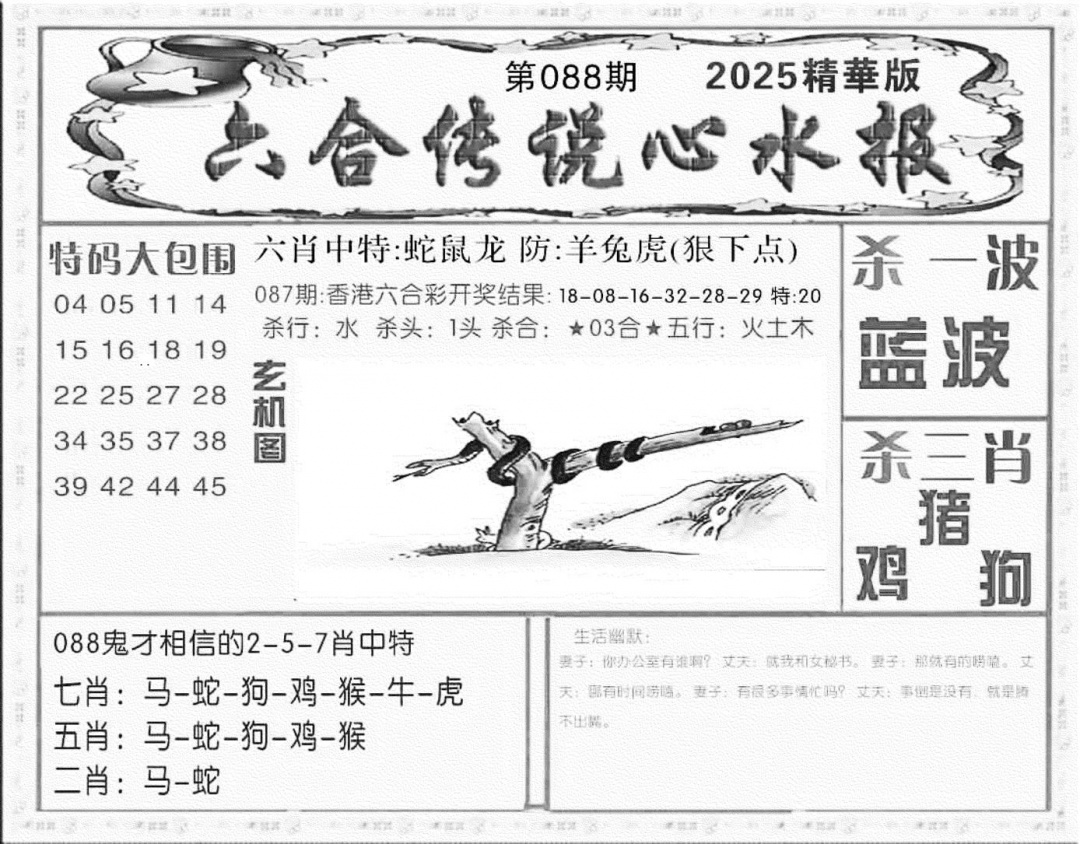 第088期 2025精華版
六合传说心水报
特码大包围
04 05 11 14
15 16 18 19
22 25 27 28
34 35 37 38
39 42 44 45
六肖中特:蛇鼠龙 防:羊兔虎(狠下点)
087期:香港六合彩开奖结果: 18-08-16-32-28-29 特:20
杀行：水 杀头：1头 杀合：★03合★五行：火土木
玄机图
杀一波
蓝波
杀三肖
猪
鸡 狗
088鬼才相信的2-5-7肖中特
七肖：马-蛇-狗-鸡-猴-牛-虎
五肖：马-蛇-狗-鸡-猴
二肖：马-蛇
生活幽默：
妻子：你办公室有谁啊？ 丈夫：就我和女秘书。 妻子：那就有的唠嗑。 丈
夫：哪有时间唠嗑。 妻子：有很多事情忙吗？ 丈夫：事倒是没有，就是腾
不出嘴。